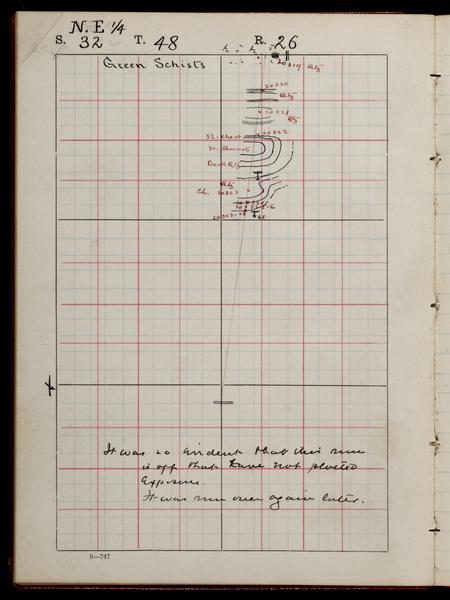 N.E 1/4
S. 32 T. 48 R. 26
Green Schists
20319 Qtz
20320
Qtz
20321
Qtz
20322
Qtz
20323
It was so evident that this run
is off that have not plotted
Exposure.
It was run over again later.
6—747